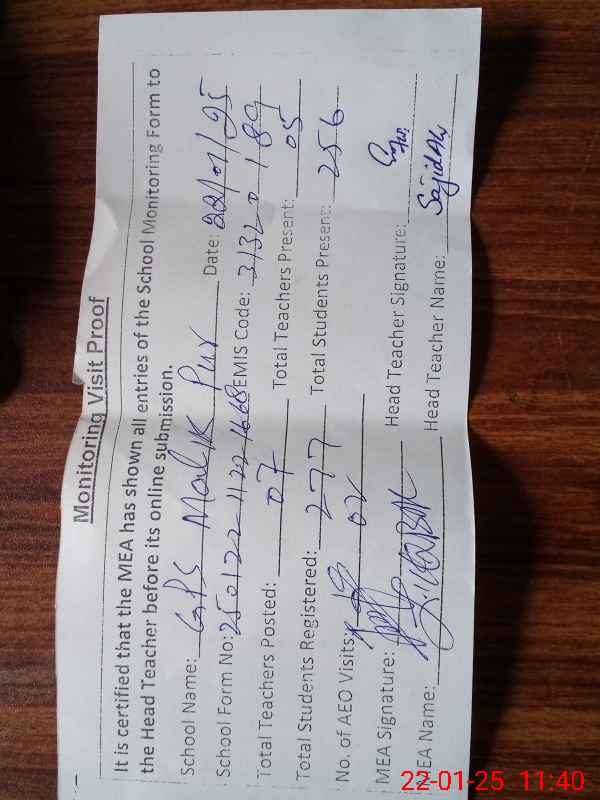 Monitoring Visit Proof
It is certified that the MEA has shown all entries of the School Monitoring Form to
the Head Teacher before its online submission.
School Name: GPS Malik Pur Date: 22/01/25
School Form No: 250122 1122 1668 EMIS Code: 31320189
Total Teachers Posted: 07 Total Teachers Present: 05
Total Students Registered: 277 Total Students Present: 256
No. of AEO Visits: 02
MEA Signature: Head Teacher Signature:
MEA Name: Head Teacher Name: Sajid Ali
22-01-25 11:40